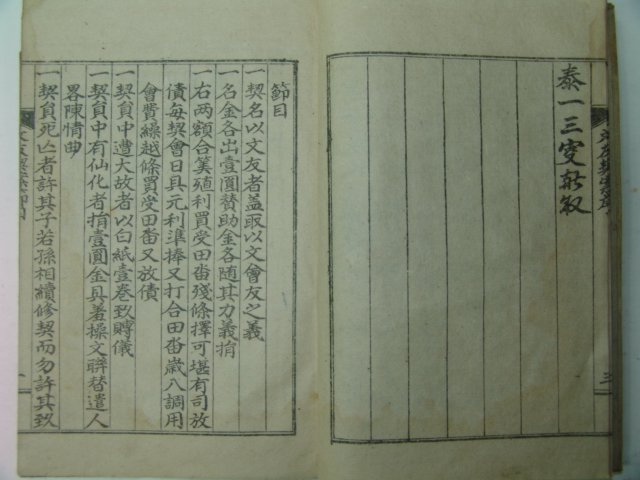 泰一三叟新敍
節目
一契名以文友者盖取以文會友之義
一名金各出壹圜賛助金各隨其力義捐
一右两額合筭殖利買受田畓殘條擇可堪有司放
債每契會日具元利準捧又打合田畓歲入調用
會費繰越條買受田畓又放債
一契員中遭大故者以白紙壹卷致賻儀
一契員中有仙化者捐壹圜金具羞操文聯替遣人
畧陳情曲
一契員死亡者許其子若孫相續修契而勿許其玖